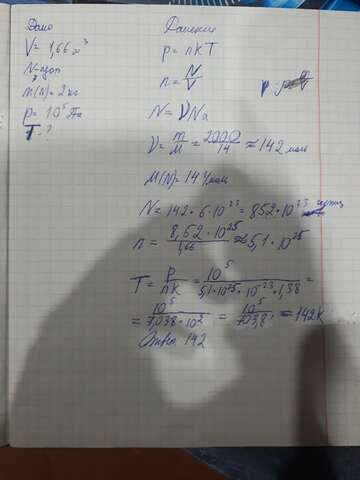 Дано
V = 1,66 м³
N-азот
m(N) = 2 кг
p = 10⁵ Па
T - ?
Решение
p = nkT
n = N/V
N = νNa
ν = m/M = 2000/14 ≈ 142 моль
M(N) = 14 г/моль
N = 142 · 6 · 10²³ = 852 · 10²³ частиц
n = 8,52 · 10²⁵/1,66 ≈ 5,1 · 10²⁵
T = p/nk = 10⁵/5,1 · 10²⁵ · 10⁻²³ · 1,38 =
= 10⁵/7,038 · 10² = 10⁵/703,8 = 142 K
Ответ 142